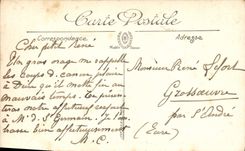 Carte Postale
Correspondance
Adresse
Cher petit René
Un gros orage me rappelle
les coups de canon
à Dun qu'il mette fin au
mauvais temps.
mon affectueux respect
à Mr d. St Germain. Je t'em
brasse bien affectueusement
A. C.
Monsieur René Lefort
Grossœuvre
par St André
(Eure)